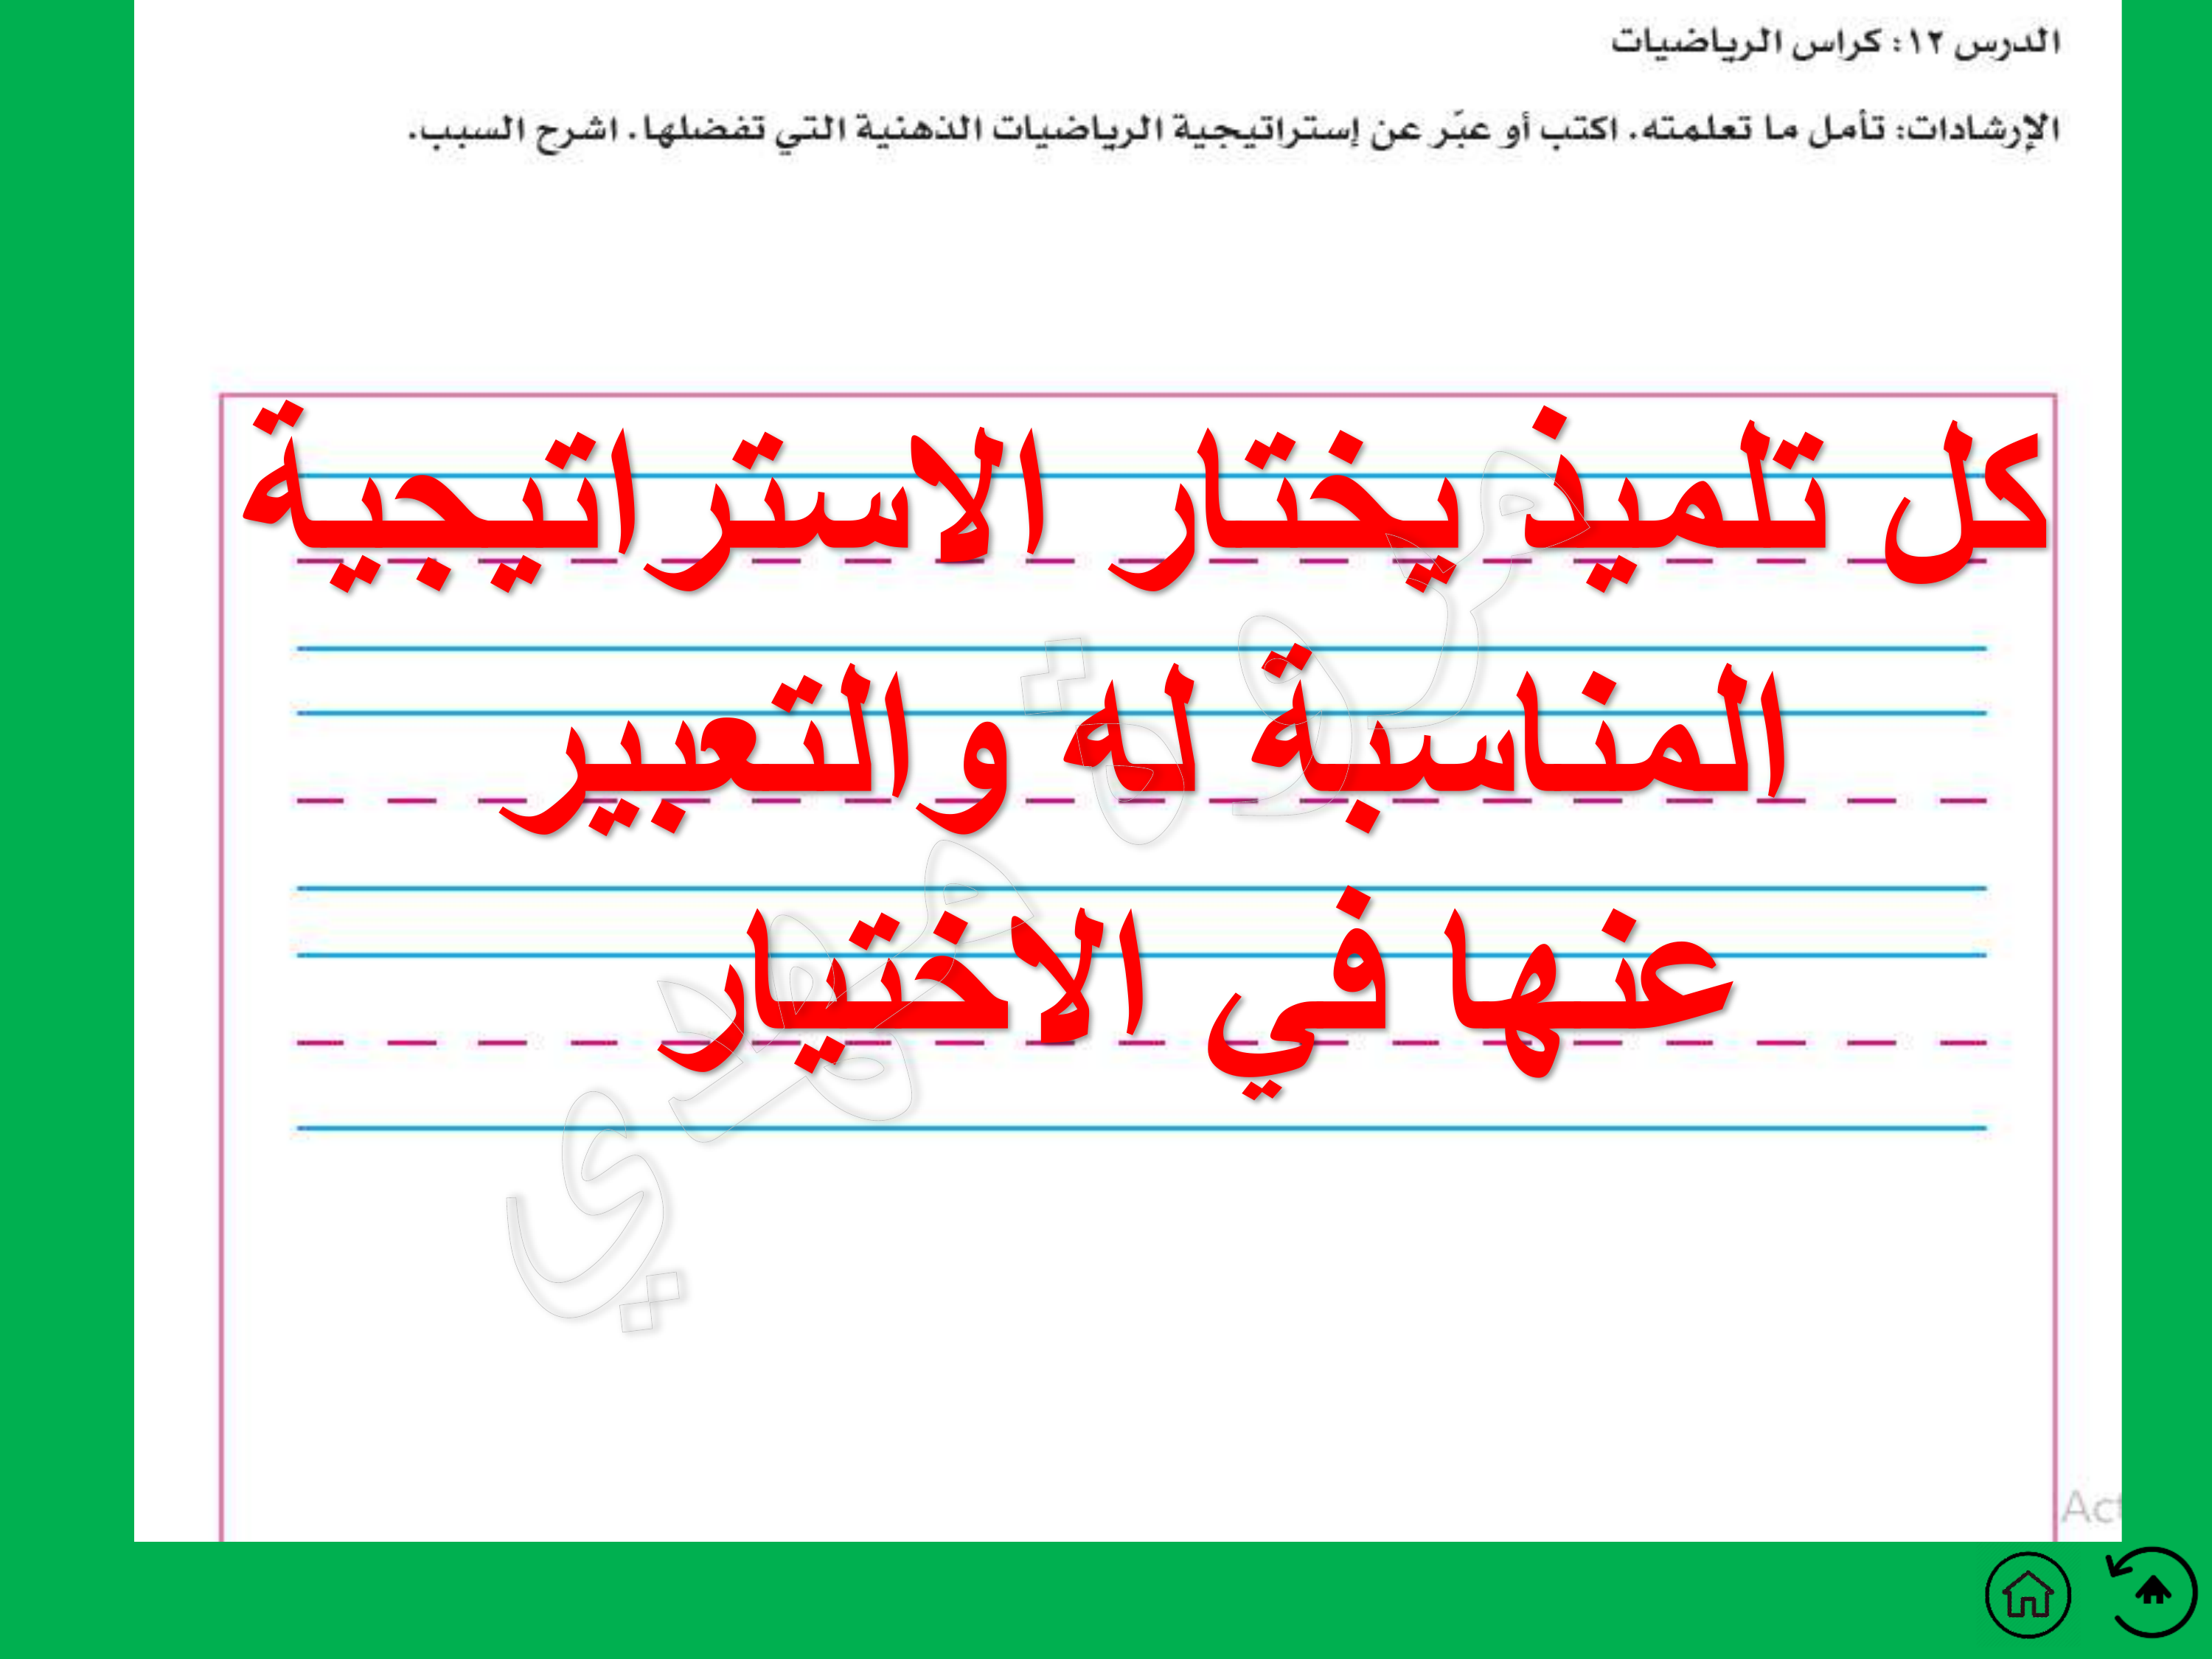 الدرس ١٢: كراس الرياضيات
الإرشادات: تأمل ما تعلمته. اكتب أو عبّر عن إستراتيجية الرياضيات الذهنية التي تفضلها. اشرح السبب.
كل تلميذ يختار الاستراتيجية
المناسبة له والتعبير
عنها في الاختيار
مروة مهدي